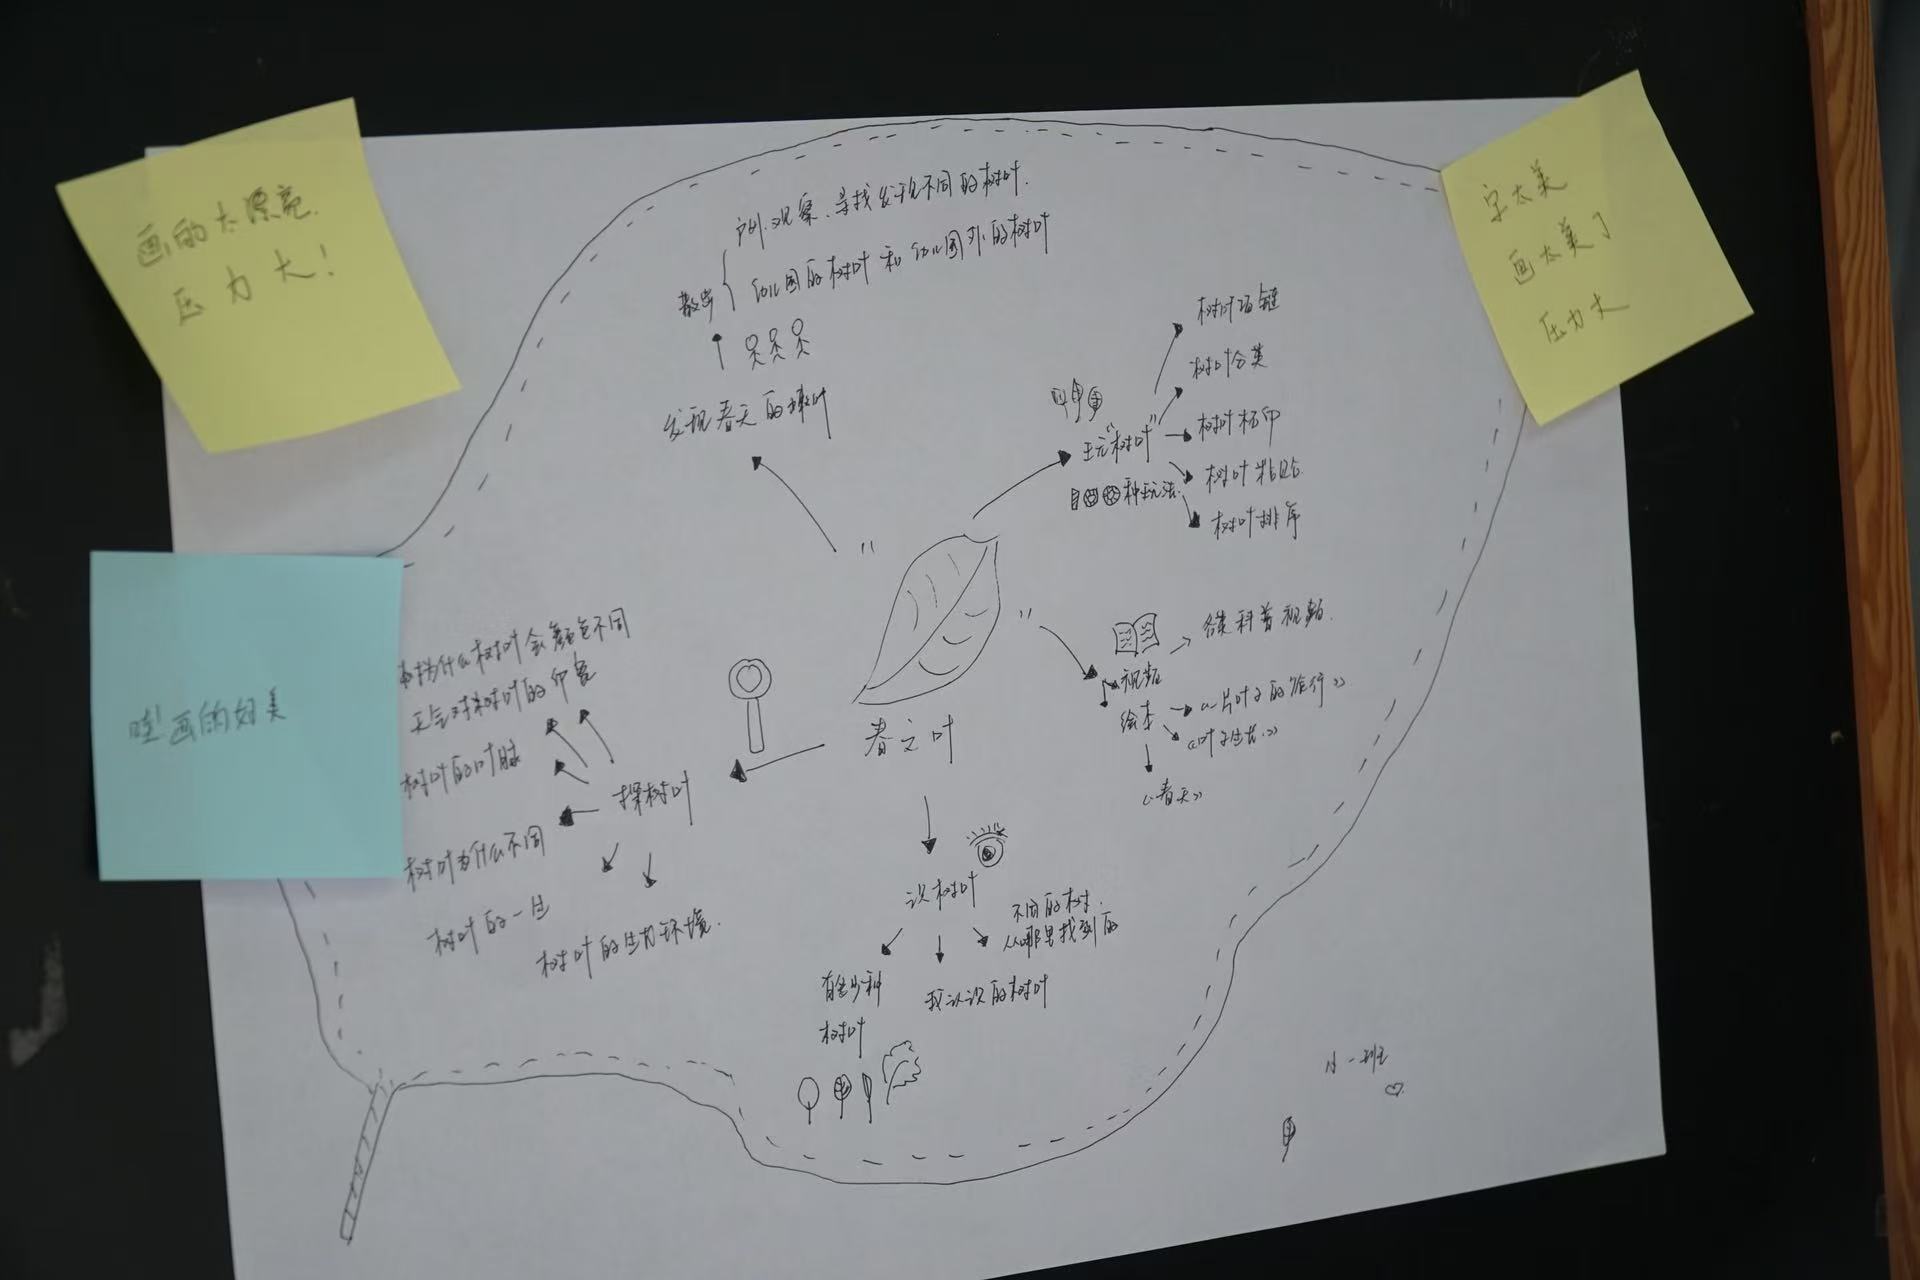 画的太漂亮
压力大!
字太美
画太美了
压力大
哇!画的好美
户外观察、寻找发现不同的树叶.
幼儿园的树叶和幼儿园外的树叶
散步
发现春天的树叶
玩“树叶”
种玩法
树叶项链
树叶分类
树叶拓印
树叶粘贴
树叶排序
各类科普视频.
视频
绘本
《一片叶子的旅行》
《春天》
春之叶
探树叶
为什么树叶会颜色不同
天气对树叶的
树叶的叶脉
树叶为什么不同
树叶的一生
树叶的生力环境.
识树叶
不同的树.
从哪里找到的
我认识的树叶
有多少种
树叶
小一班